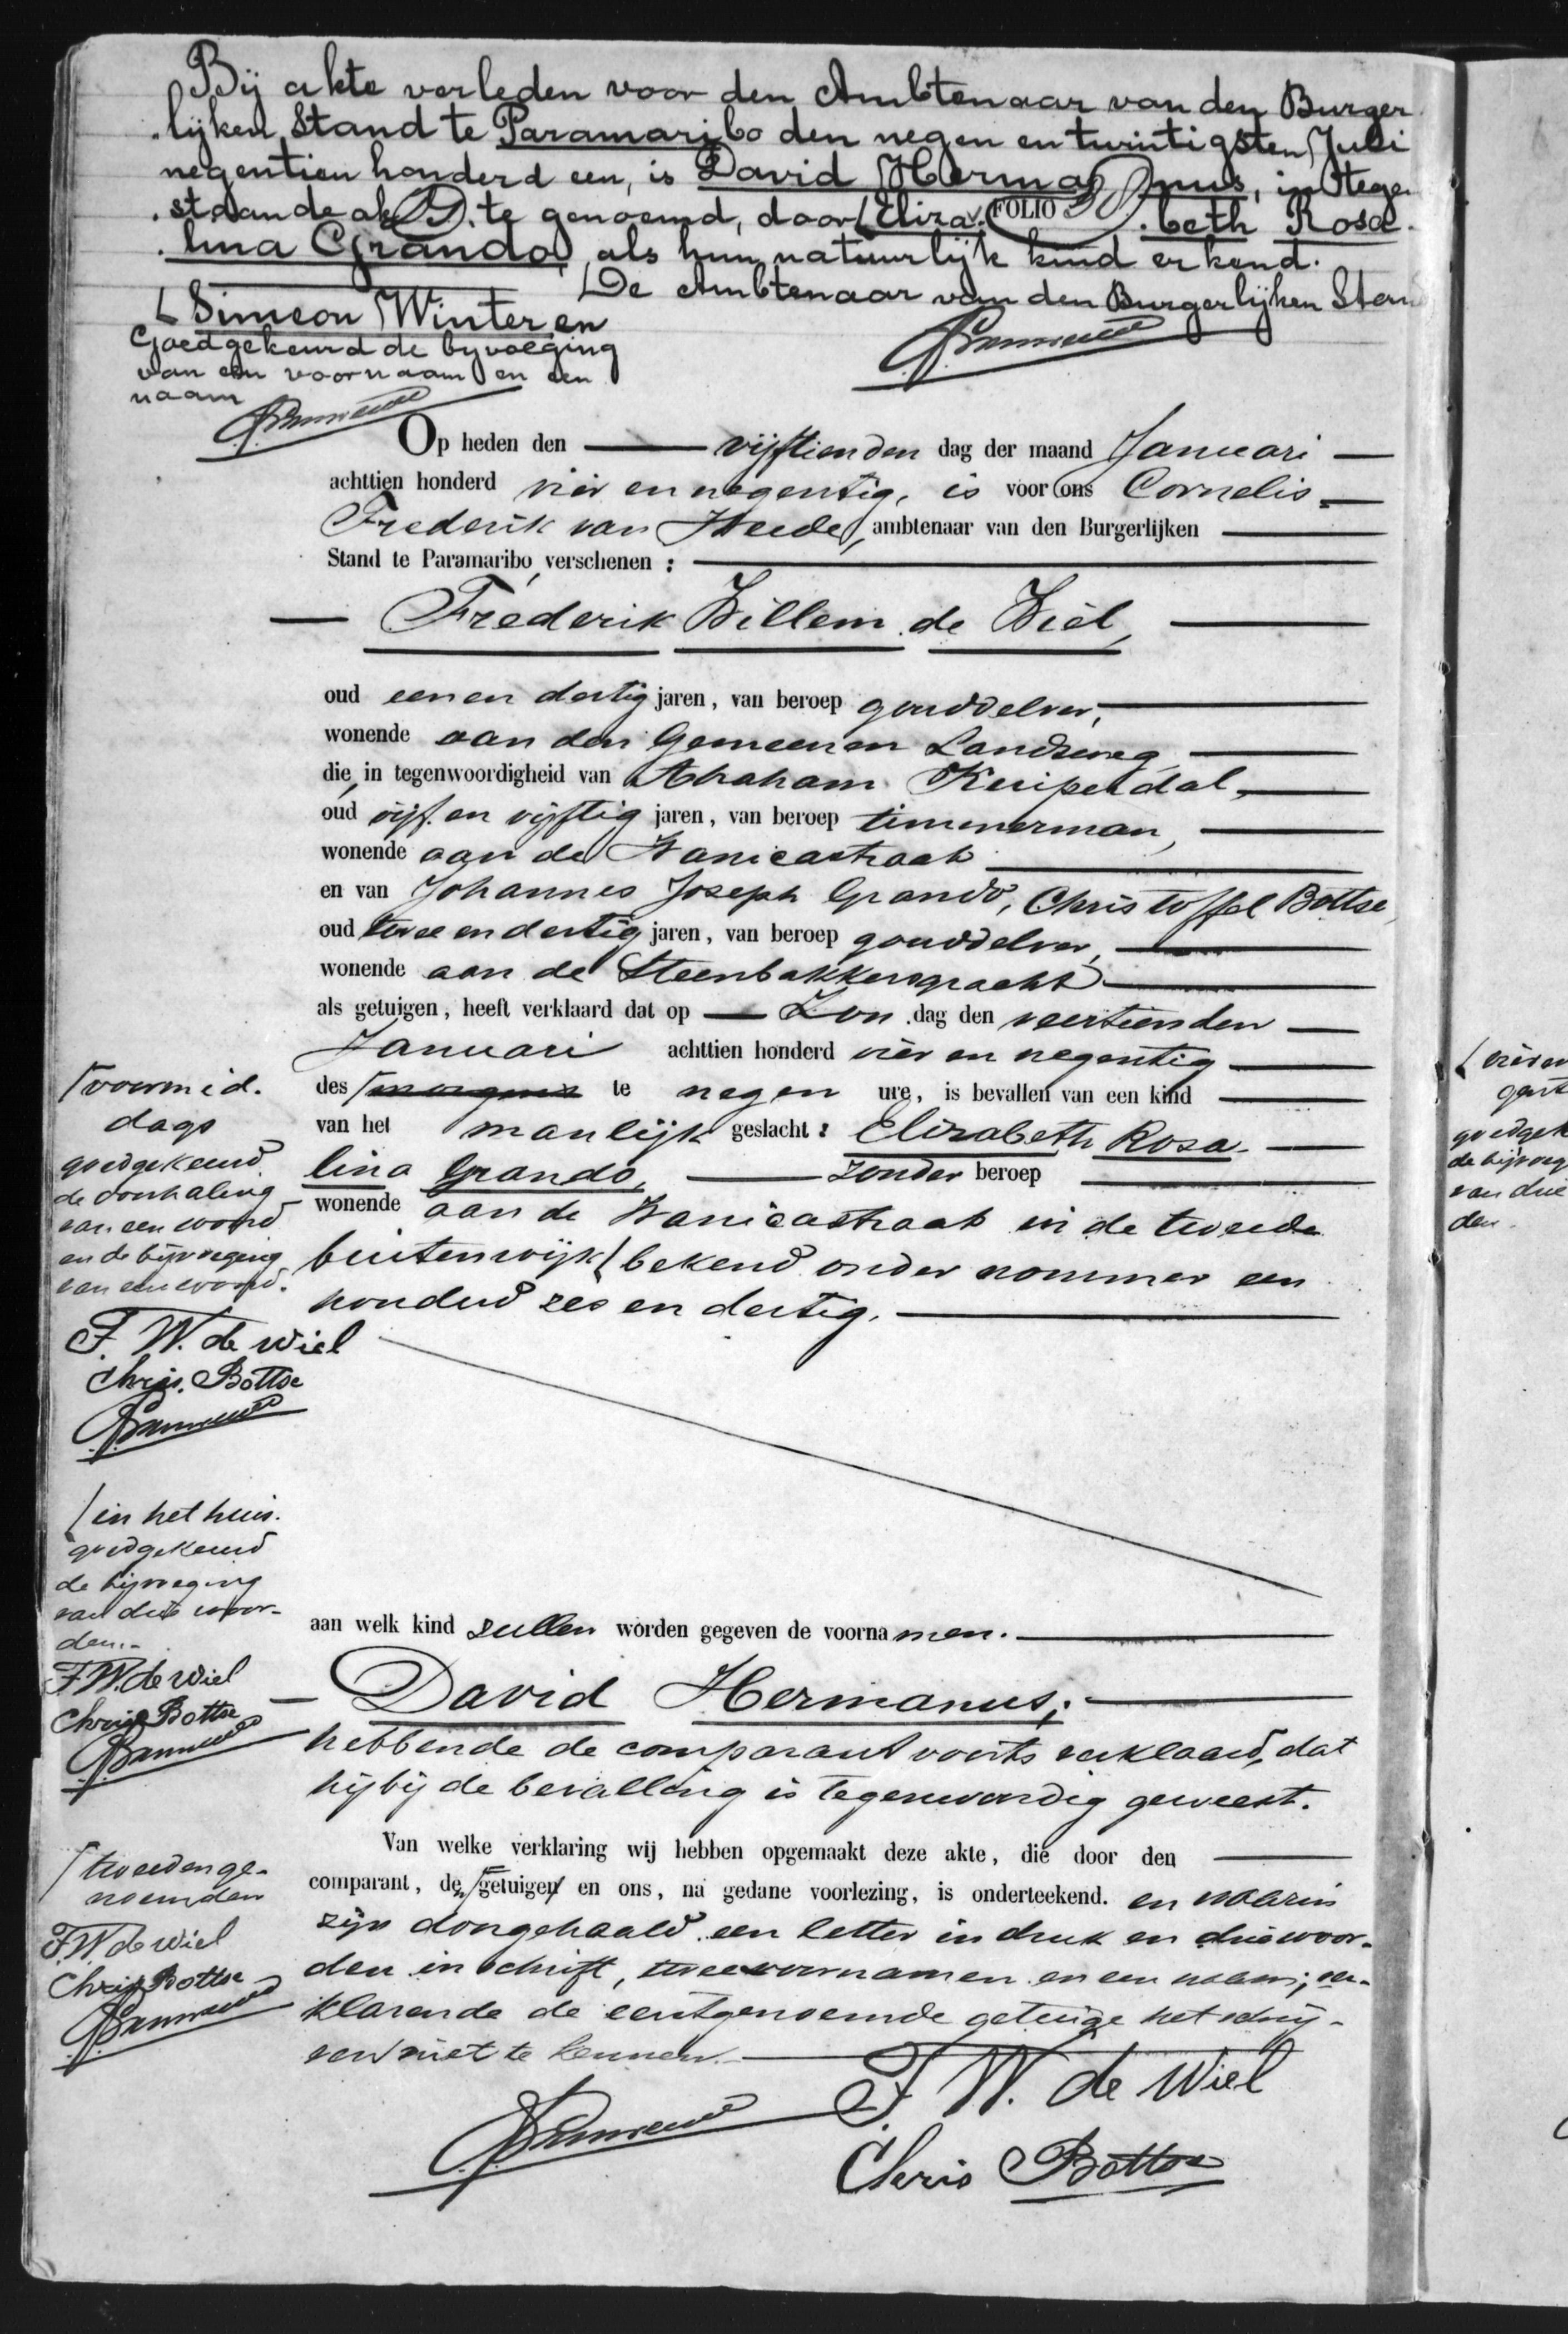 Bij akte verleden voor den Ambtenaar van den Burger
lijken Stand te Paramaribo den negen en twintigsten Juli
negentien honderd een, is David Hermanus, in tegen
staande akte genoemd, door Eliza- FOLIO beth Rosa
lina Grando, als hun natuurlijk kind erkend.
De Ambtenaar van den Burgerlijken Stand
Simeon Winter en
Goedgekeurd de bijvoeging
van een voornaam en een
naam
Op heden den vijftienden dag der maand Januari
achttien honderd vier en negentig, is voor ons Cornelis
Frederik van Heede, ambtenaar van den Burgerlijken
Stand te Paramaribo, verschenen :
Frederik Willem de Wiel,
oud een en dertig jaren, van beroep gouddelver,
wonende aan den Gemeenen Landsweg
die, in tegenwoordigheid van Abraham Kuiperdal,
oud vijf en vijftig jaren, van beroep timmerman,
wonende aan de Wanicastraat
en van Johannes Joseph Grando, Christoffel Bottse,
oud twee en dertig jaren, van beroep gouddelver,
wonende aan de Steenbakkersgracht
als getuigen, heeft verklaard dat op Zondag den veertienden
Januari achttien honderd vier en negentig
des morgens te negen ure, is bevallen van een kind
van het manlijk geslacht: Elizabeth Rosa-
lina Grando, zonder beroep
wonende aan de Wanicastraat in de tweede
buitenwijk bekend onder nommer een
honderd zes en dertig.
voormid-
dags
goedgekeurd
de doorhaling
van een woord
en de bijvoeging
van een woord.
F. W. de Wiel
Chris. Bottse
in het huis.
goedgekeurd
de bijvoeging
van drie woor-
den.
F. W. de Wiel
Chris Bottse
aan welk kind zullen worden gegeven de voornamen.
David Hermanus;
hebbende de comparant voorts verklaard, dat
hij bij de bevalling is tegenwoordig geweest.
Van welke verklaring wij hebben opgemaakt deze akte, die door den
comparant, den getuigen en ons, na gedane voorlezing, is onderteekend. en waarin
zijn doorgehaald een letter in druk en drie woor-
den in schrift, twee voornamen en een naam; ver-
klarende de eerstgenoemde getuige het schrij-
ven niet te kennen.
tweedenge-
noemden
F. W. de Wiel
Chris Bottse
F. W. de Wiel
Chris Bottse
goedgek
de bijvoeg
van drie
den.